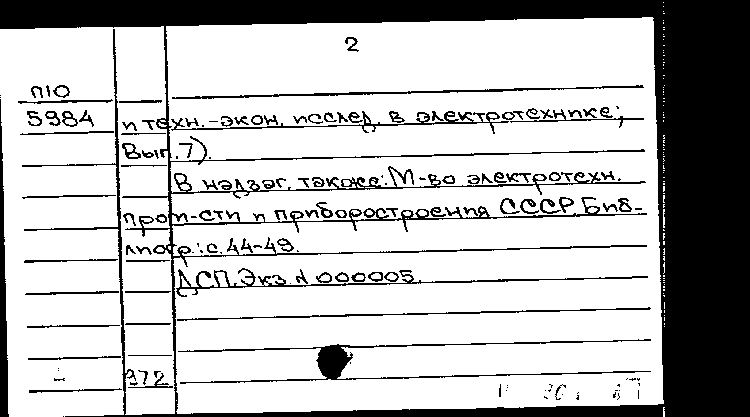 2
П10
5984 и техн.-экон. исслед. в электротехнике;
Вып. 7).
В надзаг. также: М-во электротехн.
пром-сти и приборостроения СССР. Биб-
лиогр.: с. 44-49.
ДСП. Экз. N 000005.
972